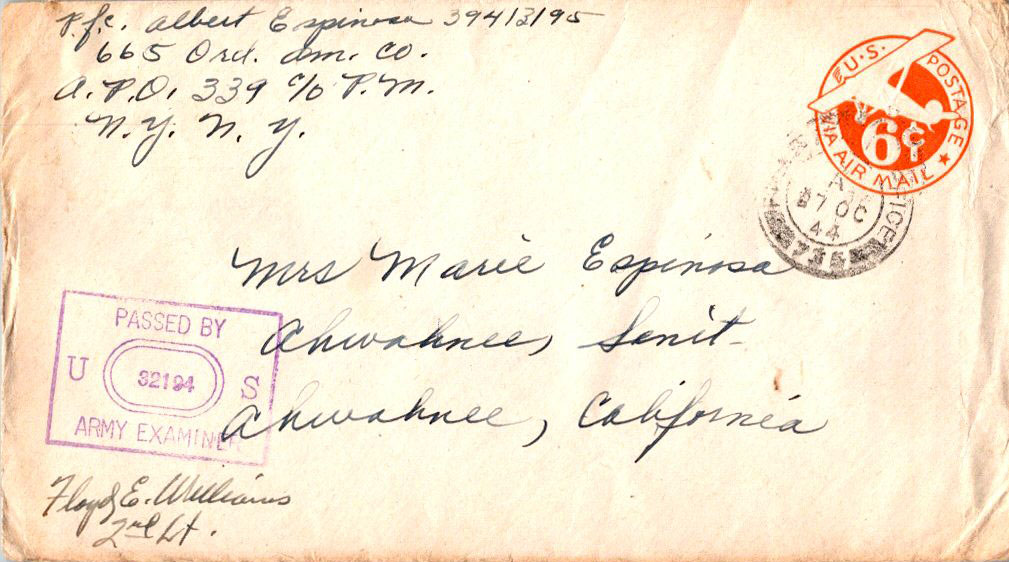 P.f.c. Albert Espinosa 39413195
665 Ord. Am. Co.
A.P.O. 339 c/o P.M.
N.Y. N.Y.
U.S. POSTAGE
6¢
VIA AIR MAIL
A
27 OC
44
Mrs Marie Espinosa
Ahwahnee, Sanit-
Ahwahnee, California
PASSED BY
U 32194 S
ARMY EXAMINER
Floyd E. Williams
2nd Lt.